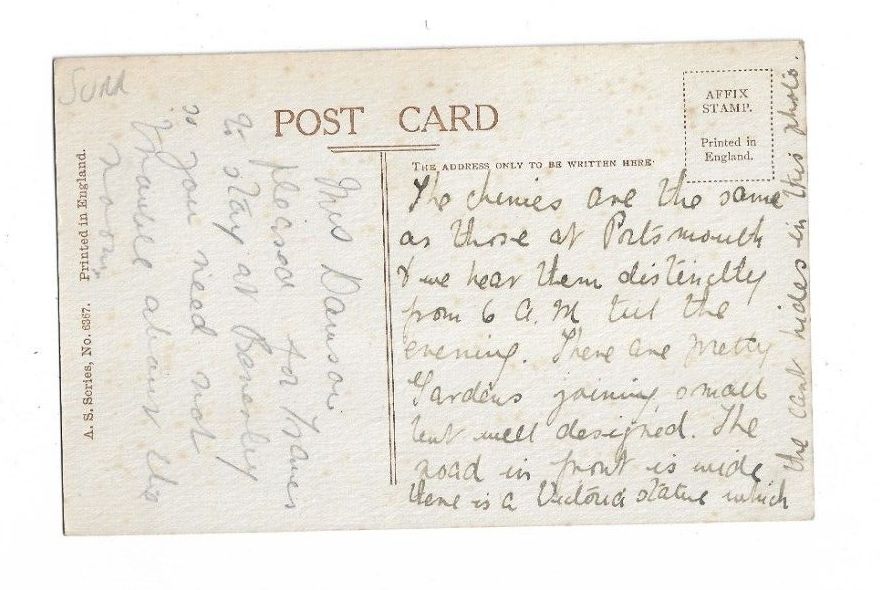 Surr
POST CARD
THE ADDRESS ONLY TO BE WRITTEN HERE.
AFFIX
STAMP.
Printed in
England.
A. S. Series, No. 6367. Printed in England.
Mrs Dawson
pleased for
to stay at Beverley
so you need not
trouble about the
room
The chimes are the same
as those at Portsmouth
& we hear them distinctly
from 6 A.M till the
evening. There are pretty
Gardens joining small
but well designed. The
road in front is wide
there is a Victoria statue which
the cart hides in this photo.